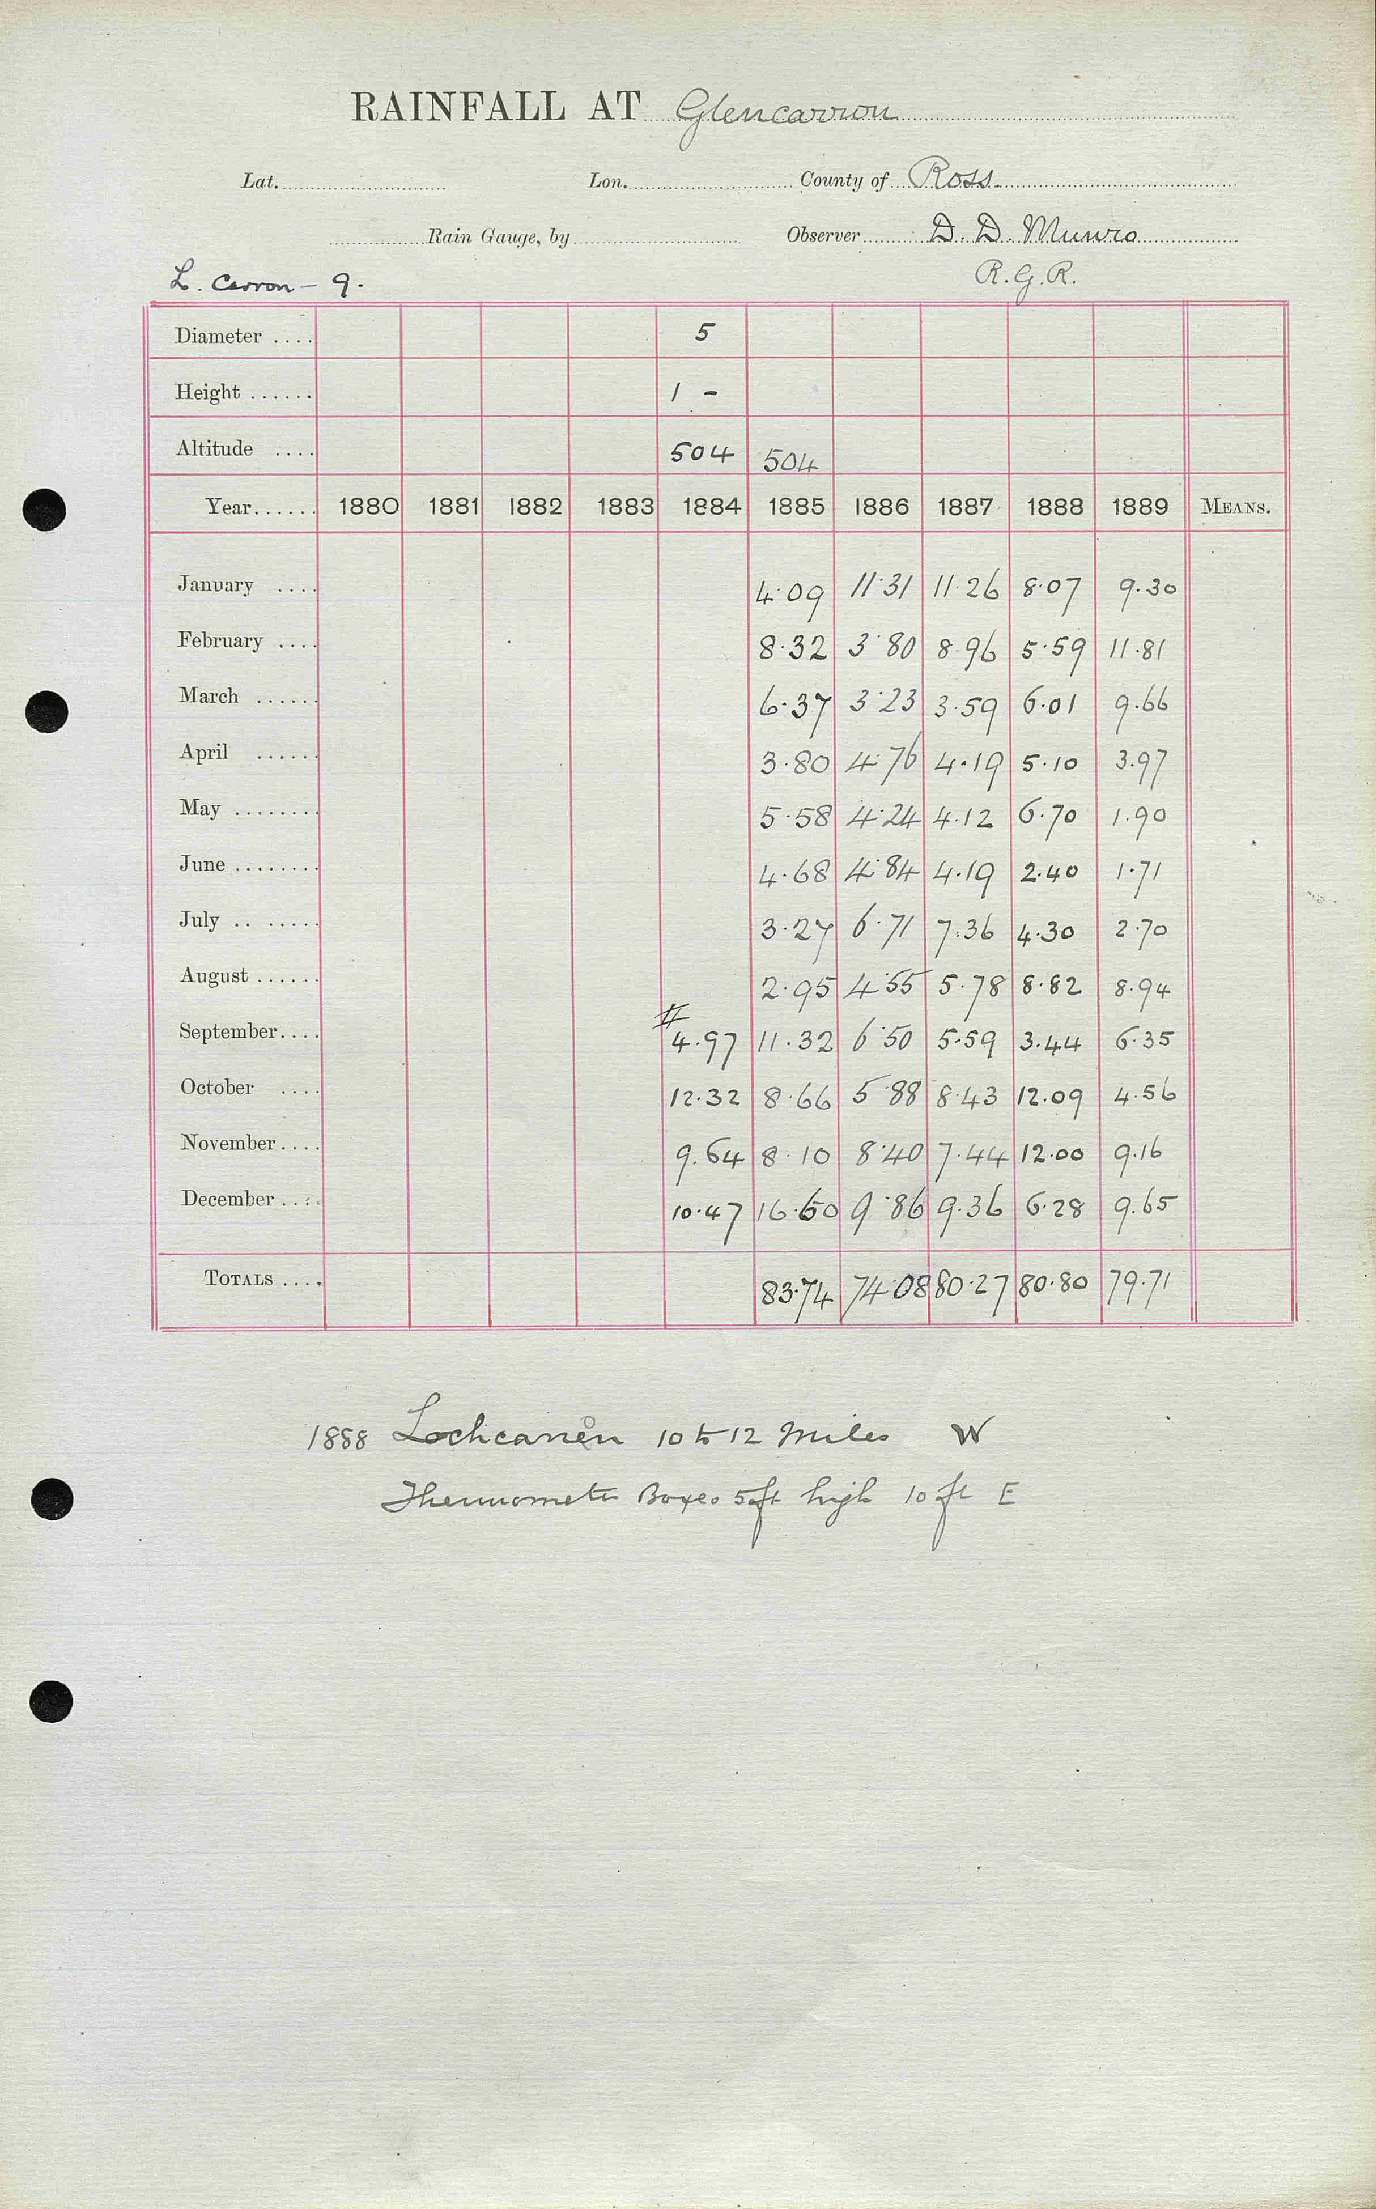 RAINFALL AT Glencarron
Lat. Lon. County of Ross
Rain Gauge, by Observer D. D. Munro
L. Carron - 9. R.G.R.
Diameter .... 5
Height ...... 1 -
Altitude .... 504 504
Year...... 1880 1881 1882 1883 1884 1885 1886 1887 1888 1889 MEANS.
January .... 4.09 11.31 11.26 8.07 9.30
February .... 8.32 3.80 8.96 5.59 11.81
March ...... 6.37 3.23 3.59 6.01 9.66
April ...... 3.80 4.76 4.19 5.10 3.97
May ........ 5.58 4.24 4.12 6.70 1.90
June ........ 4.68 4.84 4.19 2.40 1.71
July .. ..... 3.27 6.71 7.36 4.30 2.70
August ...... 2.95 4.55 5.78 8.82 8.94
September.... # 4.97 11.32 6.50 5.59 3.44 6.35
October .... 12.32 8.66 5.88 8.43 12.09 4.56
November.... 9.64 8.10 8.40 7.44 12.00 9.16
December.... 10.47 16.60 9.86 9.36 6.28 9.65
TOTALS .... 83.74 74.08 80.27 80.80 79.71
1888 Lochcarron 10 to 12 miles W
Thermometer Boxes 5ft high 10 ft E